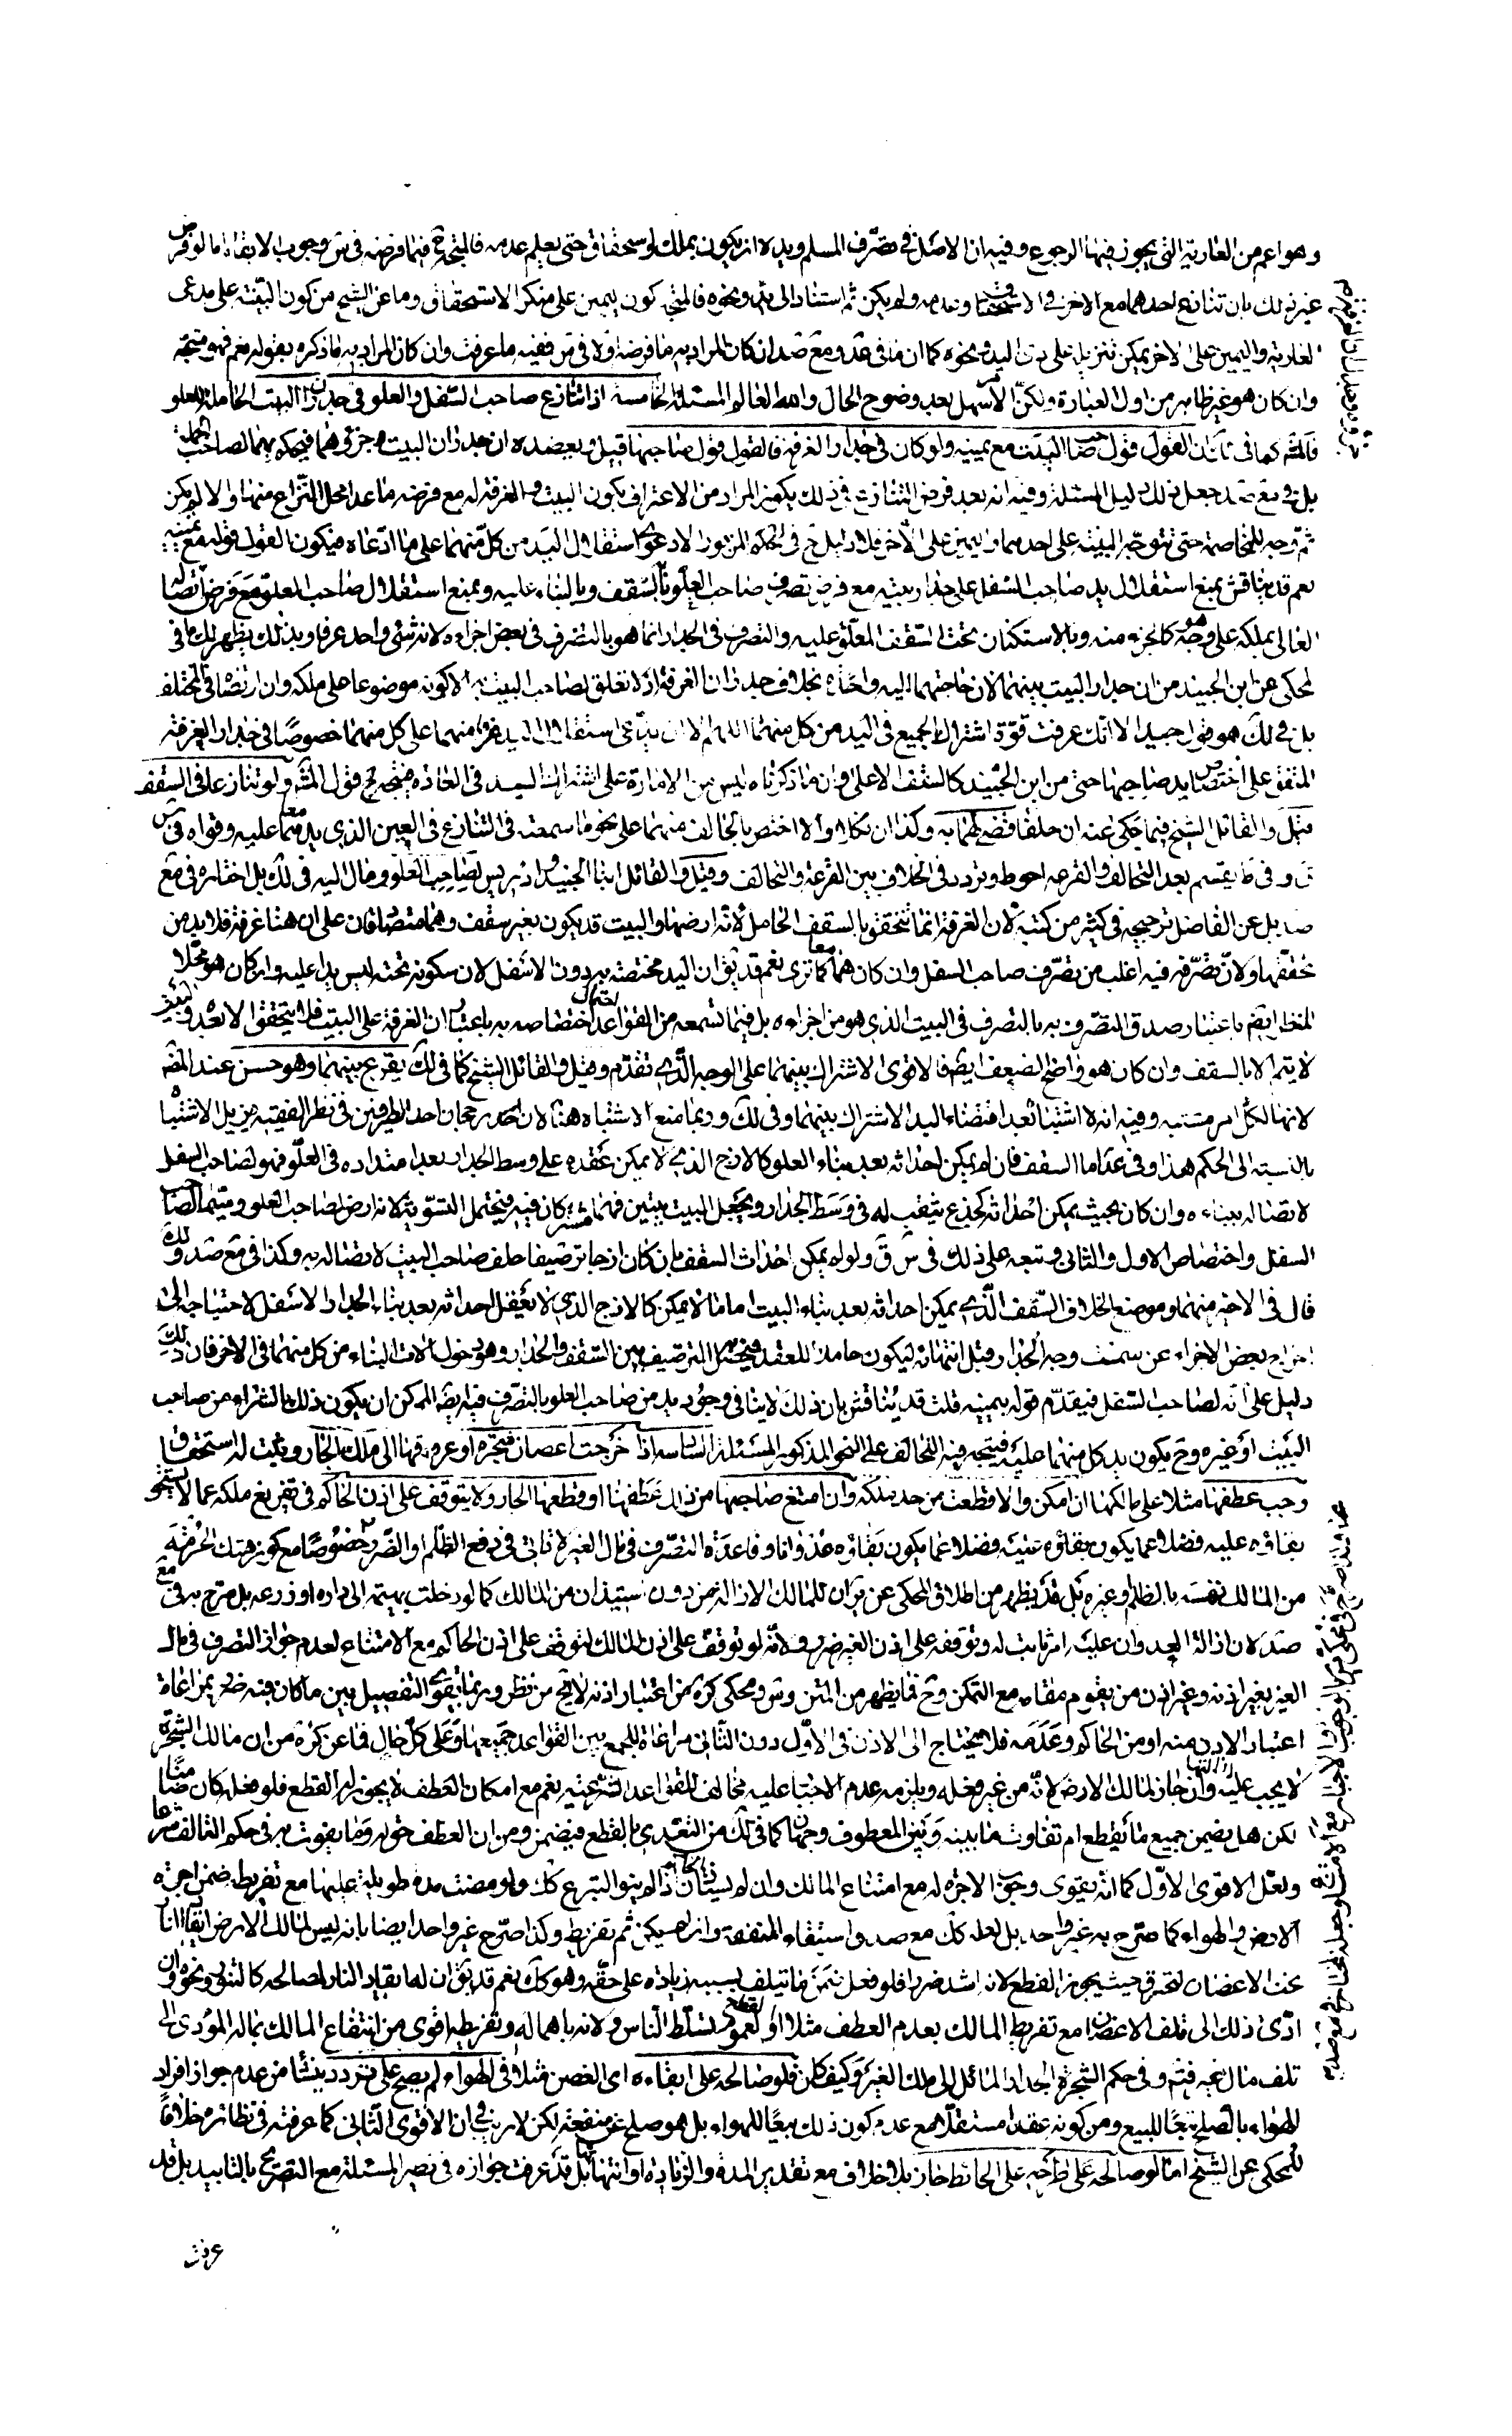 وهو اعم من العارية التي يجوز فيها الرجوع وفيه ان الاصل في تصرف المسلم ويده ان يكون بملك او استحقاق حتى يعلم عدمه فالمتجه ح فيما فرضه في وجوب الابقاء ما لو فرض
غير ذلك بان تنازع احدهما مع الاخر في الاستحقاق وعدمه ولم يكن ثم استناد الى يد ونحوه فالمتجه كون اليمين على منكر الاستحقاق وما عن الشيخ من كون البينة على مدعى
العارية واليمين على الاخر يمكن تنزيله على ذي اليد ونحوه كما ان ما في عد ومع صد ان كان المراد به ما فرضه اولا في س ففيه ما عرفت وان كان المراد به ما ذكره بقوله نعم فهو متجه
وان كان هو غير ظاهر من اول العبارة ولكن الامر سهل بعد وضوح الحال والله العالم المسئلة الخامسة اذا تنازع صاحب السفل والعلو في جدران البيت الحاملة للعلو
فالقول قول صاحب البيت مع يمينه ولو كان في جدار الغرفة فالقول قول صاحبها قيل ويعضده ان جدران البيت جزؤه فيحكم بها لصاحب الجملة
بل في جعل ذلك دليل المسئلة وفيه انه بعد فرض التنازع في ذلك يكون المراد من الاعتراف بكون البيت والغرفة له مع فرضه ما عدا محل النزاع منهما والا لم يكن
ثم وجه للمخاصمة حتى تتوجه البينة على احدهما واليمين على الاخر فلا دليل ح في الحكم المزبور الا دعوى استقلال اليد من كل منهما على ما ادعاه فيكون القول قوله مع يمينه
نعم قد يناقش بمنع استقلال يد صاحب السفل على جدار بيته مع فرض تصرف صاحب العلو بالسقف وبالبناء عليه وبمنع استقلال صاحب العلو مع فرض اتصال
الغالي بملكه على وجه هو كالجزء منه وبالاستكنان تحت السقف المعلق عليه والتصرف في الجدار انما هو بالتصرف في بعض اجزائه لانه شئ واحد عرفا وبذلك يظهر لك ما في
المحكي عن ابن الجنيد من ان جدار البيت بينهما لان حاجتهما اليه واحدة بخلاف جدران الغرفة اذ لا تعلق لصاحب البيت به الا كونه موضوعا على ملكه وان ارتضاه في المختلف
بل في لك هو قول جيد الا انك عرفت قوة اشتراك الجميع في اليد من كل منهما اللهم الا ان يدعى استقلال اليد عرفا منهما على كل منهما خصوصا في جدار الغرفة
المتفق على اختصاص يد صاحبها حتى من ابن الجنيد كالسقف الاعلى وان ما ذكرناه ليس من الامارة على اشتراك اليد في العادة فيتجه ح قول المشهور ولو تنازعا في السقف
قيل والقائل الشيخ فيما حكي عنه ان حلفا قضي لهما به وكذا ان نكلا والا اختص بالحالف منهما على نحو ما سمعته في التنازع في العين الذي يد لهما عليه وقواه في س
وفي ط يقسم بعد التحالف والقرعة احوط وتردد في الخلاف بين القرعة والتحالف وقيل والقائل ابنا الجنيد وادريس لصاحب العلو ومال اليه في لك بل اختاره في مع
صد بل عن الفاضل ترجيحه في كثير من كتبه لان الغرفة انما تتحقق بالسقف الحامل لانه ارضها والبيت قد يكون بغير سقف وهما متصادقان على ان هنا غرفة فلا بد من
تحققها ولان تصرفه فيه اغلب من تصرف صاحب السفل وان كان هما معا كما ترى نعم قد يقال ان اليد مختصة به دون الاسفل لان سكونه تحته ليس يدا عليه وان كان هو محلا
لا يتم الا بالسقف وان كان هو واضح الضعف ايضا فالاقوى الاشتراك بينهما على الوجه الذي تقدم وقيل والقائل الشيخ كما في لك يقرع بينهما وهو حسن عند المص
لانها لكل امر مشتبه وفيه انه لا اشتباه بعد اقتضاء اليد الاشتراك بينهما وفي لك وربما منع الاشتباه هنا لان رجحان احد الطرفين في نظر الفقيه يزيل الاشتباه
بالنسبة الى الحكم هذا وفي عد اما السقف فان لم يمكن احداثه بعد بناء العلو كالازج الذي لا يمكن عقده على وسط الجدار بعد امتداده في العلو فهو لصاحب السفل
لاتصاله ببنائه وان كان بحيث يمكن احداثه كجذع يثقب له في وسط الجدار ويجعل البيت بيتين فهما مشتركان فيه فيحتمل التسوية لانه ارض لصاحب العلو وسماء لصاحب
السفل واختصاص الاول والثاني وتبعه على ذلك في ش ق ولو لم يمكن احداث السقف بان كان ازجا ترصيفا حلف صاحب البيت لاتصاله به وكذا في مع صد ولك
قال في الاخير منهما وموضع الخلاف السقف الذي يمكن احداثه بعد بناء البيت اما ما لا يمكن كالازج الذي لا يعقل احداثه بعد بناء الجدار الاسفل لاحتياجه الى
اخراج بعض الاجزاء عن سمت وجه الجدار قبل انتهائه ليكون حاملا للعقد فيحصل الترصيف بين السقف والجدار وهو دخول الات البناء من كل منهما في الاخر فان ذلك
دليل على انه لصاحب السفل فيقدم قوله بيمينه قلت قد يناقش بان ذلك لا ينافي وجود يد من صاحب العلو بالتصرف فيه الممكن ان يكون ذلك بالشراء من صاحب
البيت او غيره وح يكون يد كل منهما عليه فيتجه فيه التحالف على النحو المذكور المسئلة السادسة اذا خرجت اغصان شجره او عروقها الى ملك الجار ويثبت له استحقاق
وجب عطفها مثلا على مالكها ان امكن والا قطعت من حد ملكه وان امتنع صاحبها من ذلك عطفها او قطعها الجار ولا يتوقف على اذن الحاكم في تفريغ ملكه عما لا يستحق
بقاؤه عليه فضلا عما يكون بقاؤه عبثا فضلا عما يكون بقاؤه عدوانا وقاعدة التصرف في مال الغير لا تاتي في رفع الظلم او الضرر خصوصا مع كونه هتك الحرمة
من المالك نفسه بالظلم او غيره بل قد يظهر من اطلاق المحكي عن ان للمالك الازالة من دون استيذان من المالك كما لو دخلت بهيمته الى داره او زرعه بل صرح به في مع
صد لان ازالة العدوان عليه امر ثابت له وتوقفه على اذن الغير ضرر ولانه لو توقف على اذن المالك لتوقف على اذن الحاكم مع الامتناع لعدم جواز التصرف في مال
الغير بغير اذنه وغير اذن من يقوم مقامه مع التمكن وح فما يظهر من المتن وش ومحكي كره من اعتبار اذنه لا يخ من نظر وربما يقوى التفصيل بين ما كان فيه ضرر بمراعاة
اعتبار الاذن منه او من الحاكم وعدمه فلا يحتاج الى الاذن في الاول دون الثاني مراعاة للجمع بين القواعد جميعها وعلى كل حال فما عن كره من ان مالك الشجرة
لا يجب عليه ازالتها وان جاز لمالك الارض لانه من غير فعله ويلزمه عدم الاجبار عليه مخالف للقواعد الشرعية نعم مع امكان العطف لا يجوز له القطع فلو فعله كان ضامنا
لكن هل يضمن جميع ما يقطع ام تفاوت ما بينه وبين المعطوف وجهان كما في لك من التعدي بالقطع فيضمن ومن ان العطف حق له وما يفوت به في حكم التالف شرعا
ولعل الاقوى الاول كما انه يقوى وجوب الاجرة له مع امتناع المالك وان لم يستاذن الحاكم اذا لم ينو التبرع كك ولو مضت مدة طويلة عليها مع تفريطه ضمن اجرة
الارض والهواء كما صرح به غير واحد بل لعله كك مع صدق استيفاء المنفعة وان لم يكن ثم تفريط وكذا صرح غير واحد ايضا بانه ليس لمالك الارض ايقاد النار
تحت الاغصان لتحترق حيث يجوز القطع لانه اشد ضررا فلو فعل ضمن ما يتلف بسببه زيادة على حقه وهو كك نعم قد يق ان له ايقاد النار لمصالحه كالتنور ونحوه وان
ادى ذلك الى تلف الاغصان مع تفريط المالك بعدم العطف مثلا او القطع لعموم تسلط الناس ولانه باهماله وتفريطه اقوى من انتفاع المالك بماله المؤدي الى
تلف مال غيره فتم وفي حكم الشجرة الجدار المائل الى ملك الغير وكيف كان فلو صالحه على ابقاءه اي الغصن مثلا في الهواء لم يصح على تردد ينشأ من عدم جواز افراد
الهواء بالصلح تبعا للبيع ومن كونه عقدا مستقلا مع عدم كون ذلك بيعا للهواء بل هو صلح عن منفعته لكن لا ريب في ان الاقوى الثاني كما عرفته في نظائره خلافا
للمحكي عن الشيخ اما لو صالحه على طرحه على الحائط جاز بلا خلاف مع تقدير المدة والزيادة او انتهائها بل قد عرفت جوازه في نصير المسئلة مع التصريح بالتابيد بل قد
عرفت